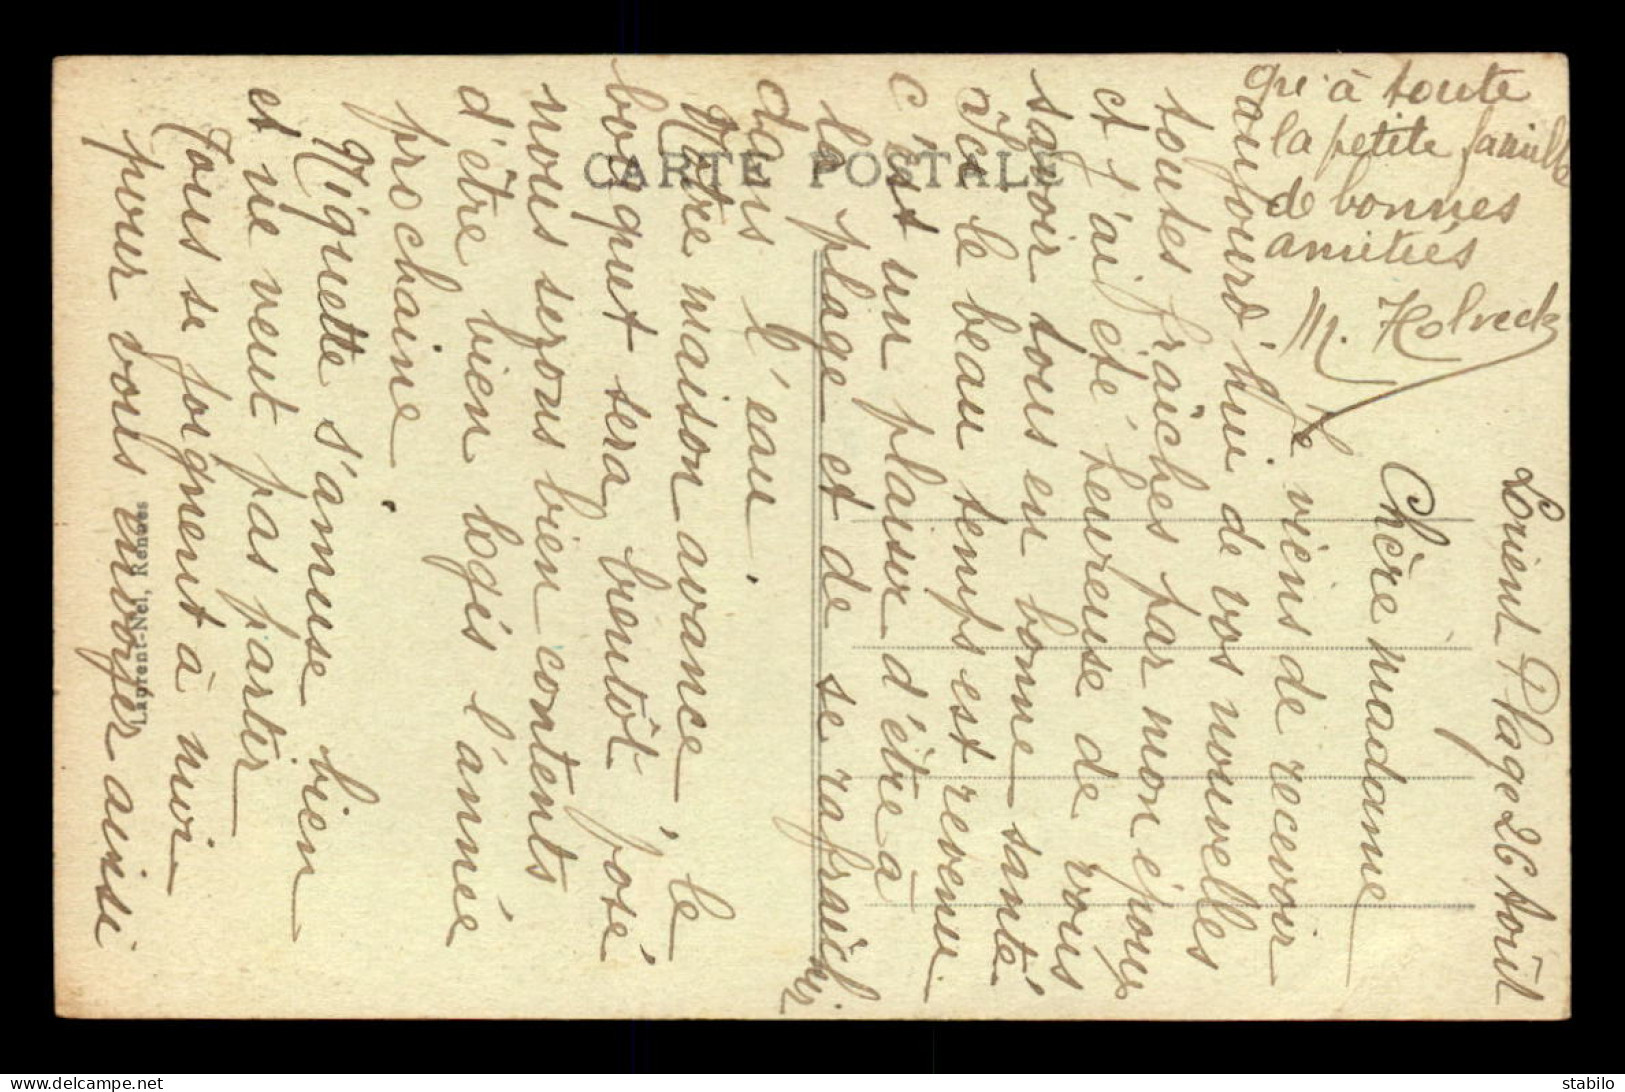 CARTE POSTALE
Laurent-Nel, Rennes
Lorient Plage 26 Août
Chère madame
Je viens de recevoir
aujourd'hui de vos nouvelles
toutes fraîches par mon époux
et j'ai été heureuse de vous
savoir tous en bonne santé
Ici le beau temps est revenu
c'est un plaisir d'être à
la plage et de se rafraîchir
dans l'eau.
Notre maison avance, le
bosquet sera bientôt posé
nous serons bien contents
d'être bien logis l'année
prochaine.
Niquette s'amuse bien
et ne veut pas partir
Tous se joignent à moi
pour vous envoyer ainsi
qu'à toute
la petite famille
de bonnes
amitiés
M. Holveck
stabilo